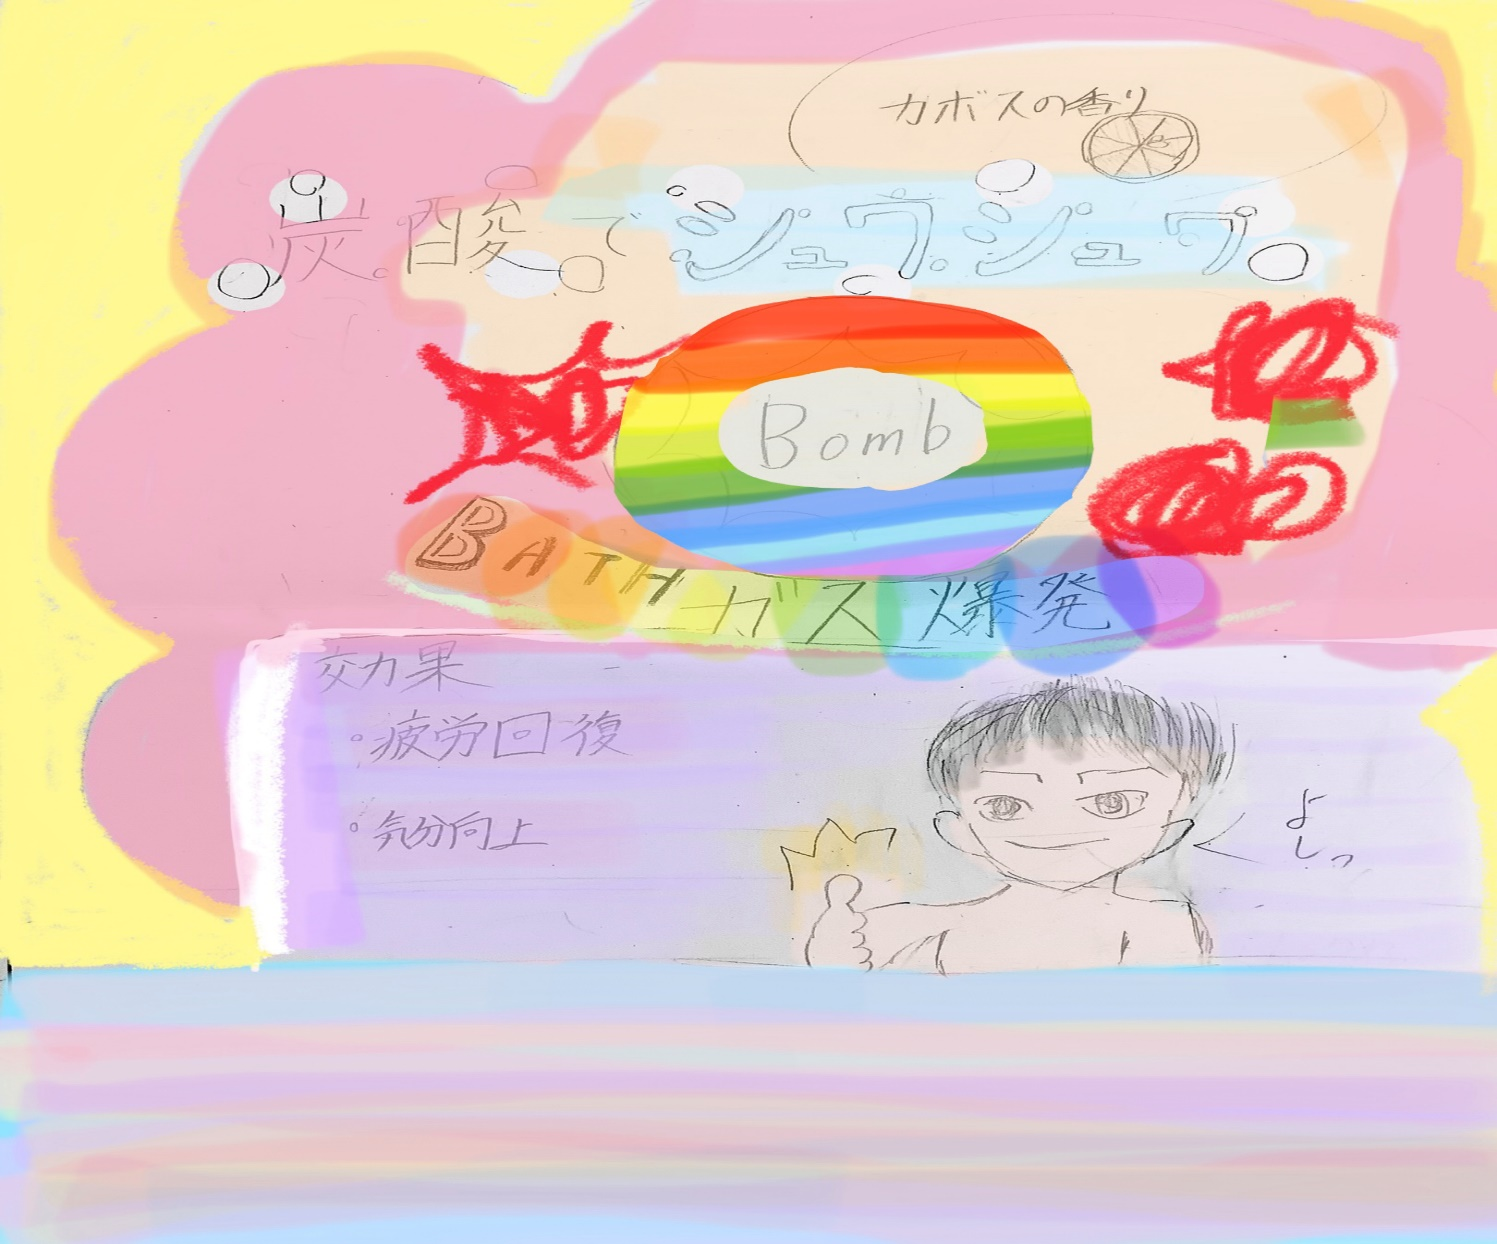 カボスの香り
炭酸でシュワシュワ
Bomb
BATHガス爆発
効果
・疲労回復
・気分向上
よしっ